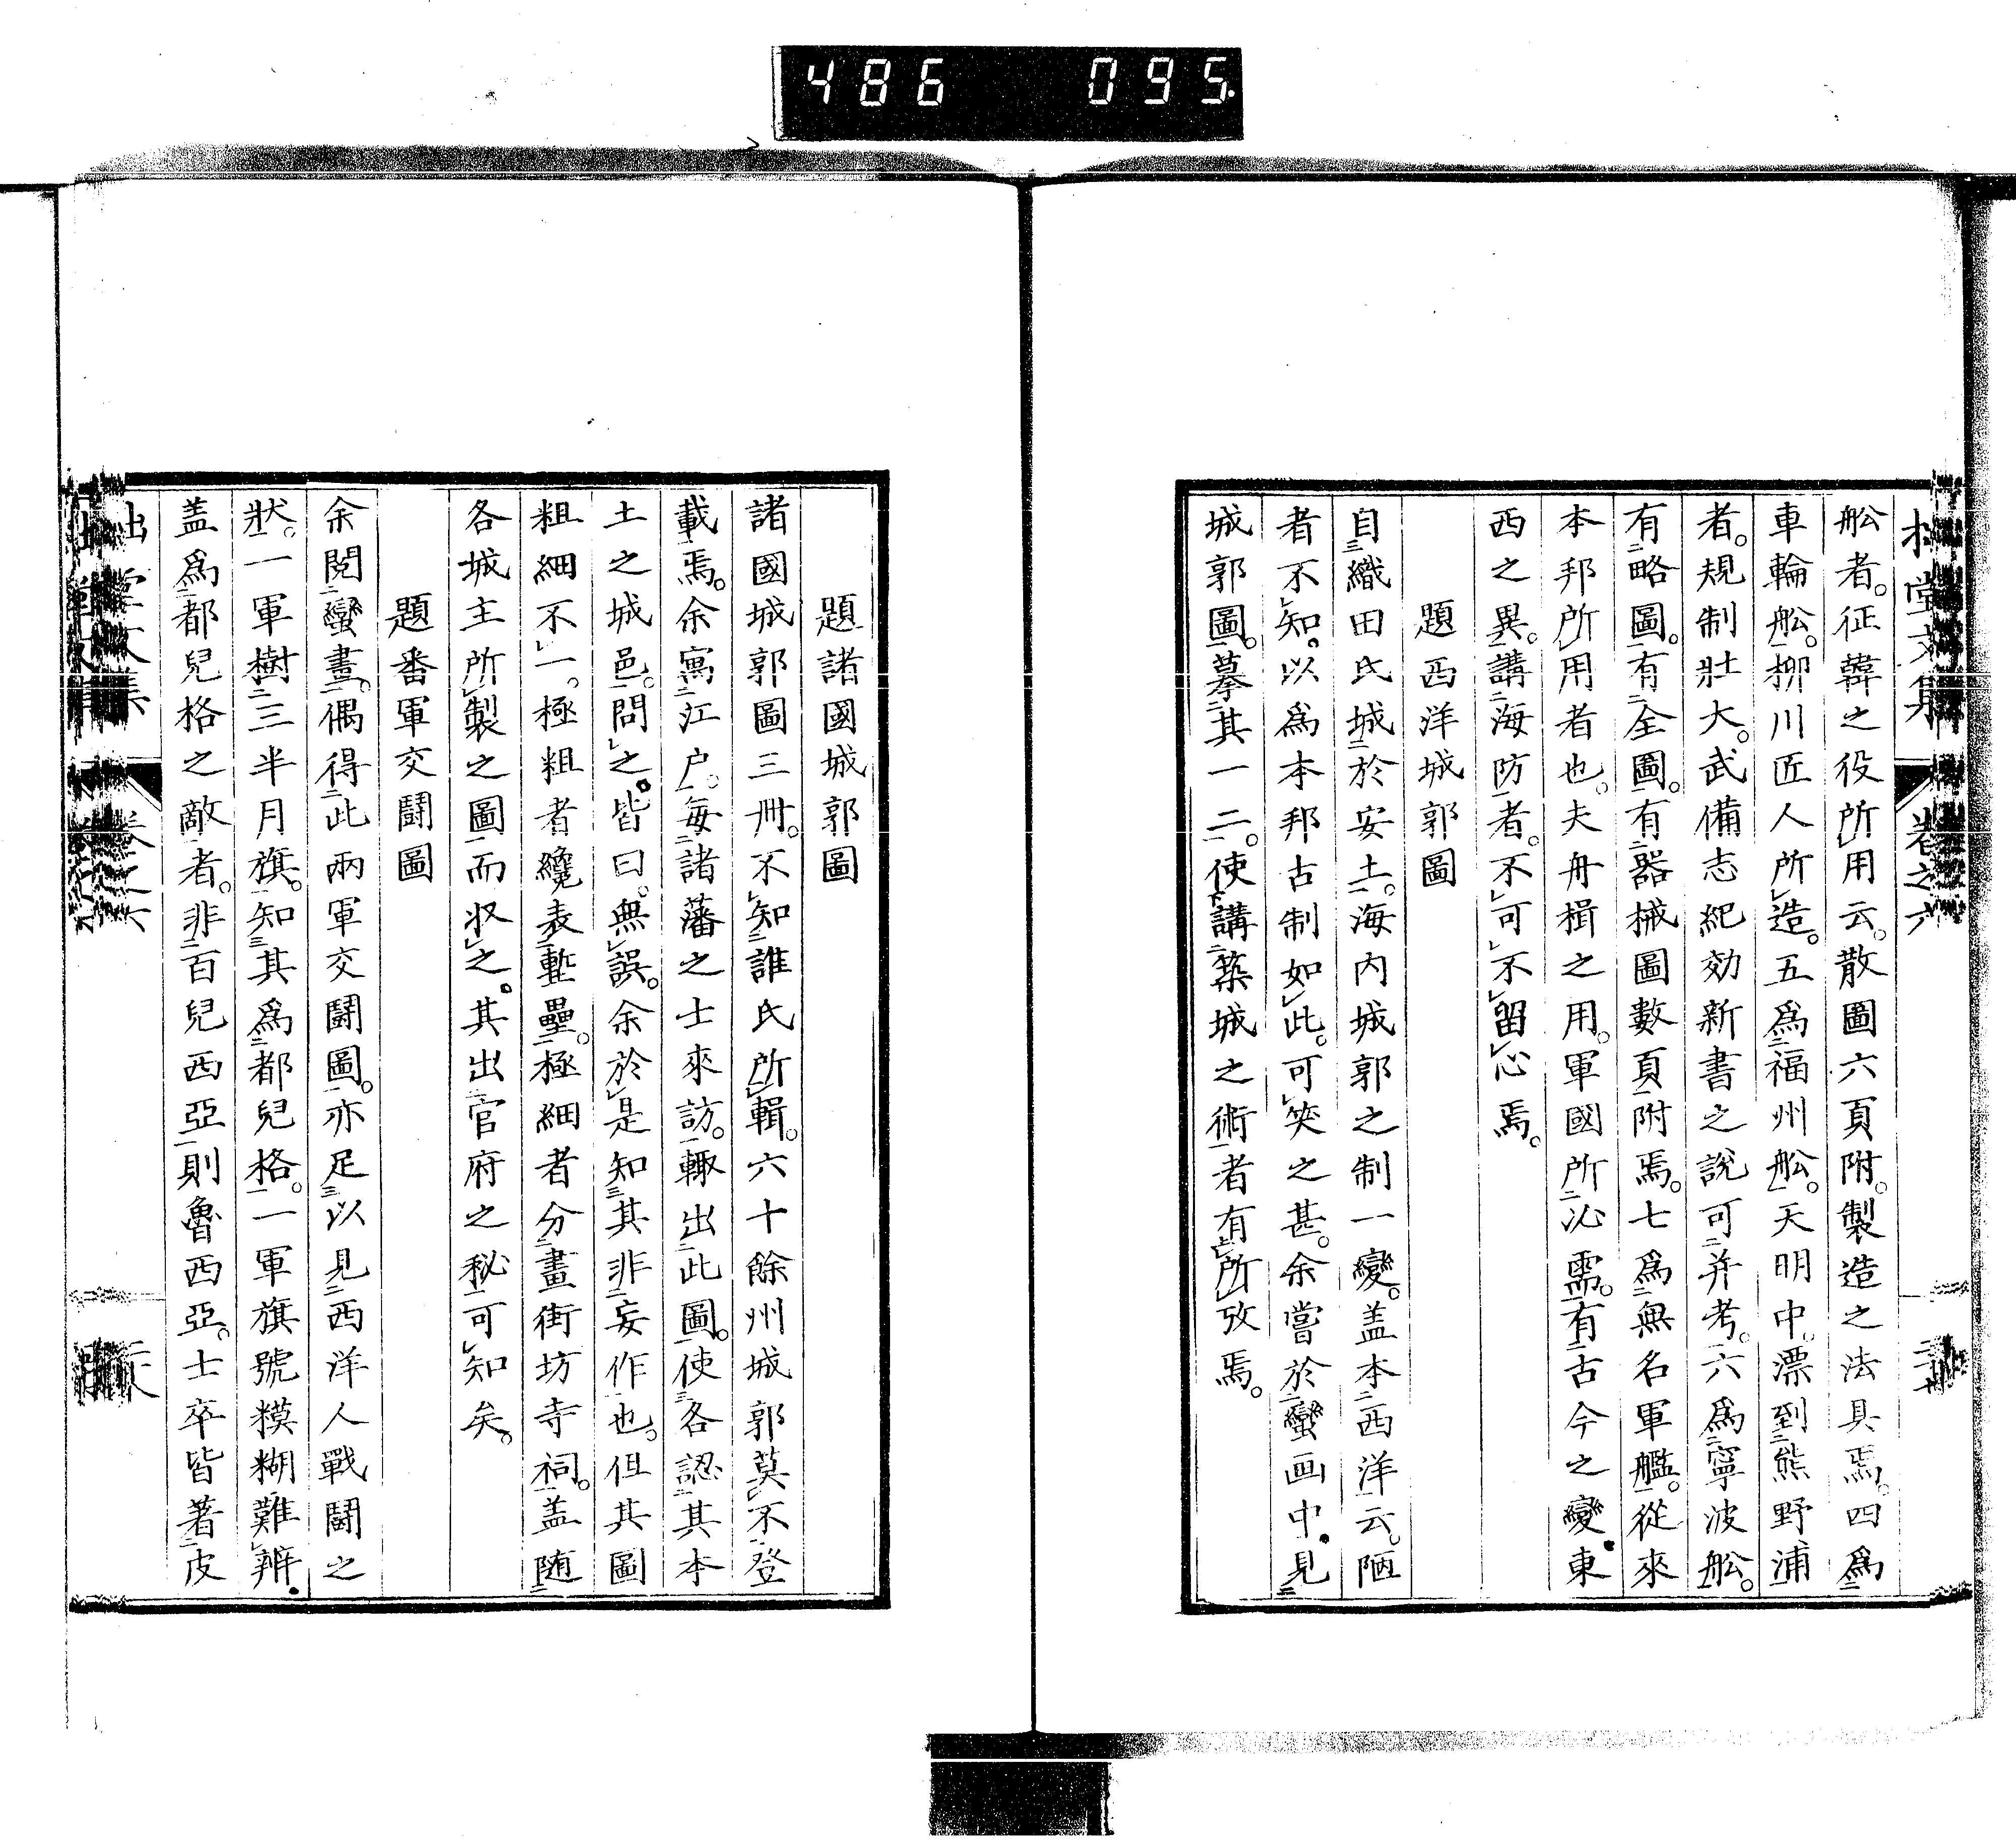 486 095
堂文集 卷之六
舩者。征韓之役所用云。散圖六頁附。製造之法具焉。四爲
車輪舩。柳川匠人所造。五爲福州舩。天明中。漂到熊野浦
者。規制壯大。武備志紀効新書之說可并考。六爲寧波舩。
有略圖。有全圖。有器械圖數頁附焉。七爲無名軍艦。從來
本邦所用者也。夫舟楫之用。軍國所必需。有古今之變。東
西之異。講海防者。不可不留心焉。
題西洋城郭圖
自織田氏城於安土。海内城郭之制一變。盖本西洋云。陋
者不知。以爲本邦古制如此。可笑之甚。余嘗於蠻画中。見
城郭圖。摹其一二。使講築城之術者有所攷焉。
題諸國城郭圖
諸國城郭圖三冊。不知誰氏所輯。六十餘州城郭莫不登
載焉。余寓江户。每諸藩之士來訪。輙出此圖。使各認其本
土之城邑。問之。皆曰。無誤。余於是知其非妄作也。但其圖
粗細不一。極粗者纔表塹壘。極細者分畫街坊寺祠。盖随
各城主所製之圖而収之。其出官府之秘可知矣。
題番軍交鬪圖
余閱蠻畫。偶得此兩軍交鬪圖。亦足以見西洋人戰鬪之
狀。一軍樹三半月旗。知其爲都兒格。一軍旗號糢糊難辨。
盖爲都兒格之敵者。非百兒西亞則魯西亞。士卒皆著皮